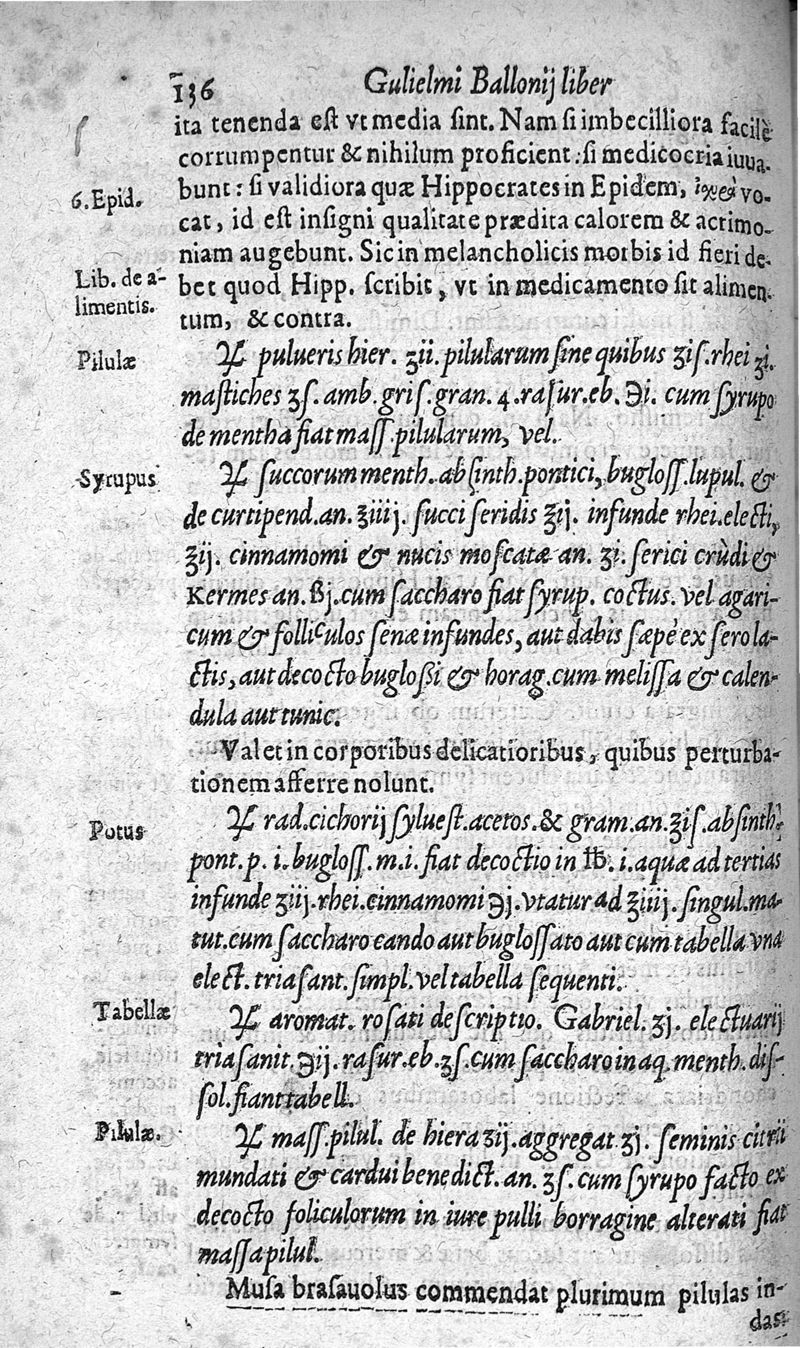 136 Gulielmi Ballonij liber
ita tenenda eſt vt media ſint. Nam ſi imbecilliora facilè
corrumpentur & nihilum proficient : ſi mediocria iuua-
6. Epid.
bunt : ſi validiora quæ Hippocrates in Epidem, vo-
cat, id eſt inſigni qualitate prædita calorem & acrimo-
niam augebunt. Sic in melancholicis morbis id fieri de-
Lib. de a-
limentis.
bet quod Hipp. ſcribit, vt in medicamento ſit alimen-
tum, & contra.
Pilulæ
℞ pulueris hier. ʒii. pilularum ſine quibus ʒiſ. rhei ʒi.
maſtiches ʒſ. amb. griſ. gran. 4. raſur. eb. ℈i. cum ſyrupo
de mentha fiat maſſ. pilularum, vel.
Syrupus
℞ ſuccorum menth. abſinth. pontici, bugloſſ. lupul. &
de curtipend. an. ℥iiij. ſucci ſeridis ℥ij. infunde rhei. electi,
℥ij. cinnamomi & nucis moſcatæ an. ʒi. ſerici crùdi &
Kermes an. ßj. cum ſaccharo fiat ſyrup. coctus. vel agari-
cum & folliculos ſenæ infundes, aut dabis ſæpè ex ſero la-
ctis, aut decocto bugloßi & horag. cum meliſſa & calen-
dula aut tunic.
Valet in corporibus delicatioribus, quibus perturba-
tionem afferre nolunt.
Potus
℞ rad. cichorij ſylueſt. acetos. & gram. an. ℥iſ. abſinth.
pont. p. i. bugloſſ. m. i. fiat decoctio in ℔. i. aquæ ad tertias
infunde ʒiij. rhei. cinnamomi ℈j. vtatur ad ℥iiij. ſingul. ma-
tut. cum ſaccharo cando aut bugloſſato aut cum tabella vna
elect. triaſant. ſimpl. vel tabella ſequenti.
Tabellæ
℞ aromat. roſati deſcriptio. Gabriel. ʒj. electuarij
triaſanit. ℈ij. raſur. eb. ʒſ. cum ſaccharo in aq. menth. diſ-
ſol. fiant tabell.
Pilulæ.
℞ maſſ. pilul. de hiera ʒij. aggregat ʒj. ſeminis citrii
mundati & cardui benedict. an. ʒſ. cum ſyrupo facto ex
decocto foliculorum in iure pulli borragine alterati fiat
maſſa pilul.
Muſa braſauolus commendat plurimum pilulas in-
das